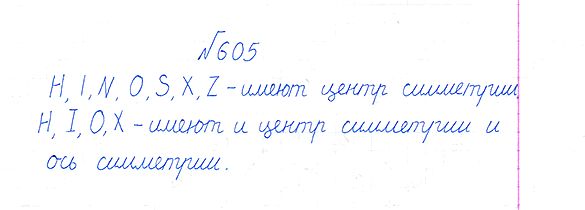 №605
H, I, N, O, S, X, Z - имеют центр симметрии,
H, I, O, X - имеют и центр симметрии и
ось симметрии.